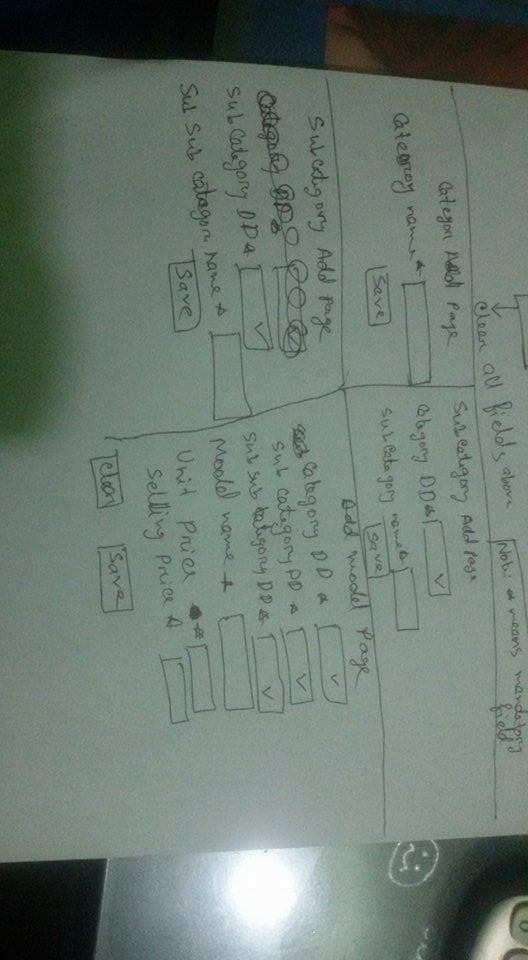 Clear all fields above
Note: * means mandatory
field
Categori Add Page
Category name *
Save
Subcategory Add Page
Category DD *
Subcategory name *
Save
Subcategory Add Page
Category DD *
Subcategory DD *
Sub Sub category name *
Save
Add model Page
Category DD *
Sub category DD *
Sub sub category DD *
Model name *
Unit Price *
Selling Price *
Clear
Save